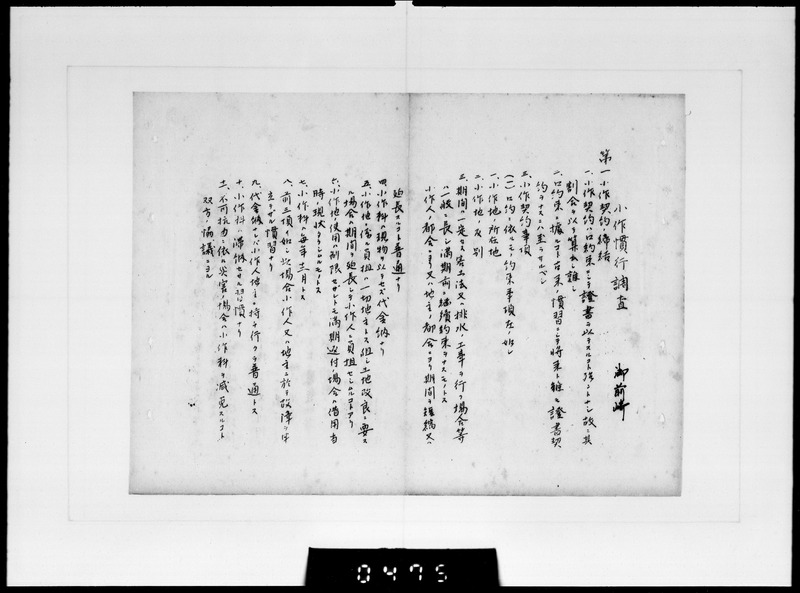 小作慣行調査
御前崎
第一 小作契約締結
一、小作契約ハ口約束ニシテ證書ニ依ラスルコト殆ントナシ故ニ其
割合ヲ以テ算出シ難シ
二、口約束ニ據ルコト古来ノ慣習ニシテ将来ト雖モ證書契
約ヲナスニハ至ラサルベシ
三、小作契約事項
(一)口約ニ依ルモノノ約束事項左ノ如シ
一、小作地ノ所在地
二、小作地ノ反別
三、期間ハ一定セス客土法又ハ排水ノ工事ヲ行フ場合等
ハ一般ニ長シ満期尚継續約束ヲナスモノトス
小作人ノ都合ニヨリ又ハ地主ノ都合ニヨリ期間ヲ短縮又ハ
延長スルコト普通ナリ
四、小作料ハ現物ヲ以テセズ代金納ナリ
五、小作地ニ係ル負担ハ一切地主トス但シ土地改良ヲ要ス
ル場合ハ期間ヲ延長シテ小作人ニ負担セシムルコトアリ
六、小作地使用ノ制限セザレトモ満期返付ノ場合ハ借用当
時ノ現状タラシムルモノトス
七、小作料ハ毎年十二月トス
八、前三項ノ如シ此場合小作人又ハ地主ニ於テ故障ヲ申
立テザル慣習ナリ
九、代金納ナレバ小作人地主ニ持チ行クヲ普通トス
十、小作料ハ滞納セサル習慣ナリ
十一、不可抗力ニ依ル災害ノ場合ハ小作料ヲ減免スルコト
双方ノ協議ニヨル
0475